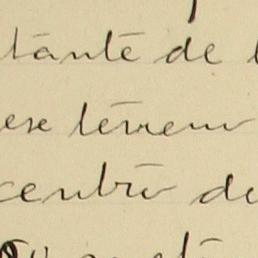 tante de l
ese terreno
centro de